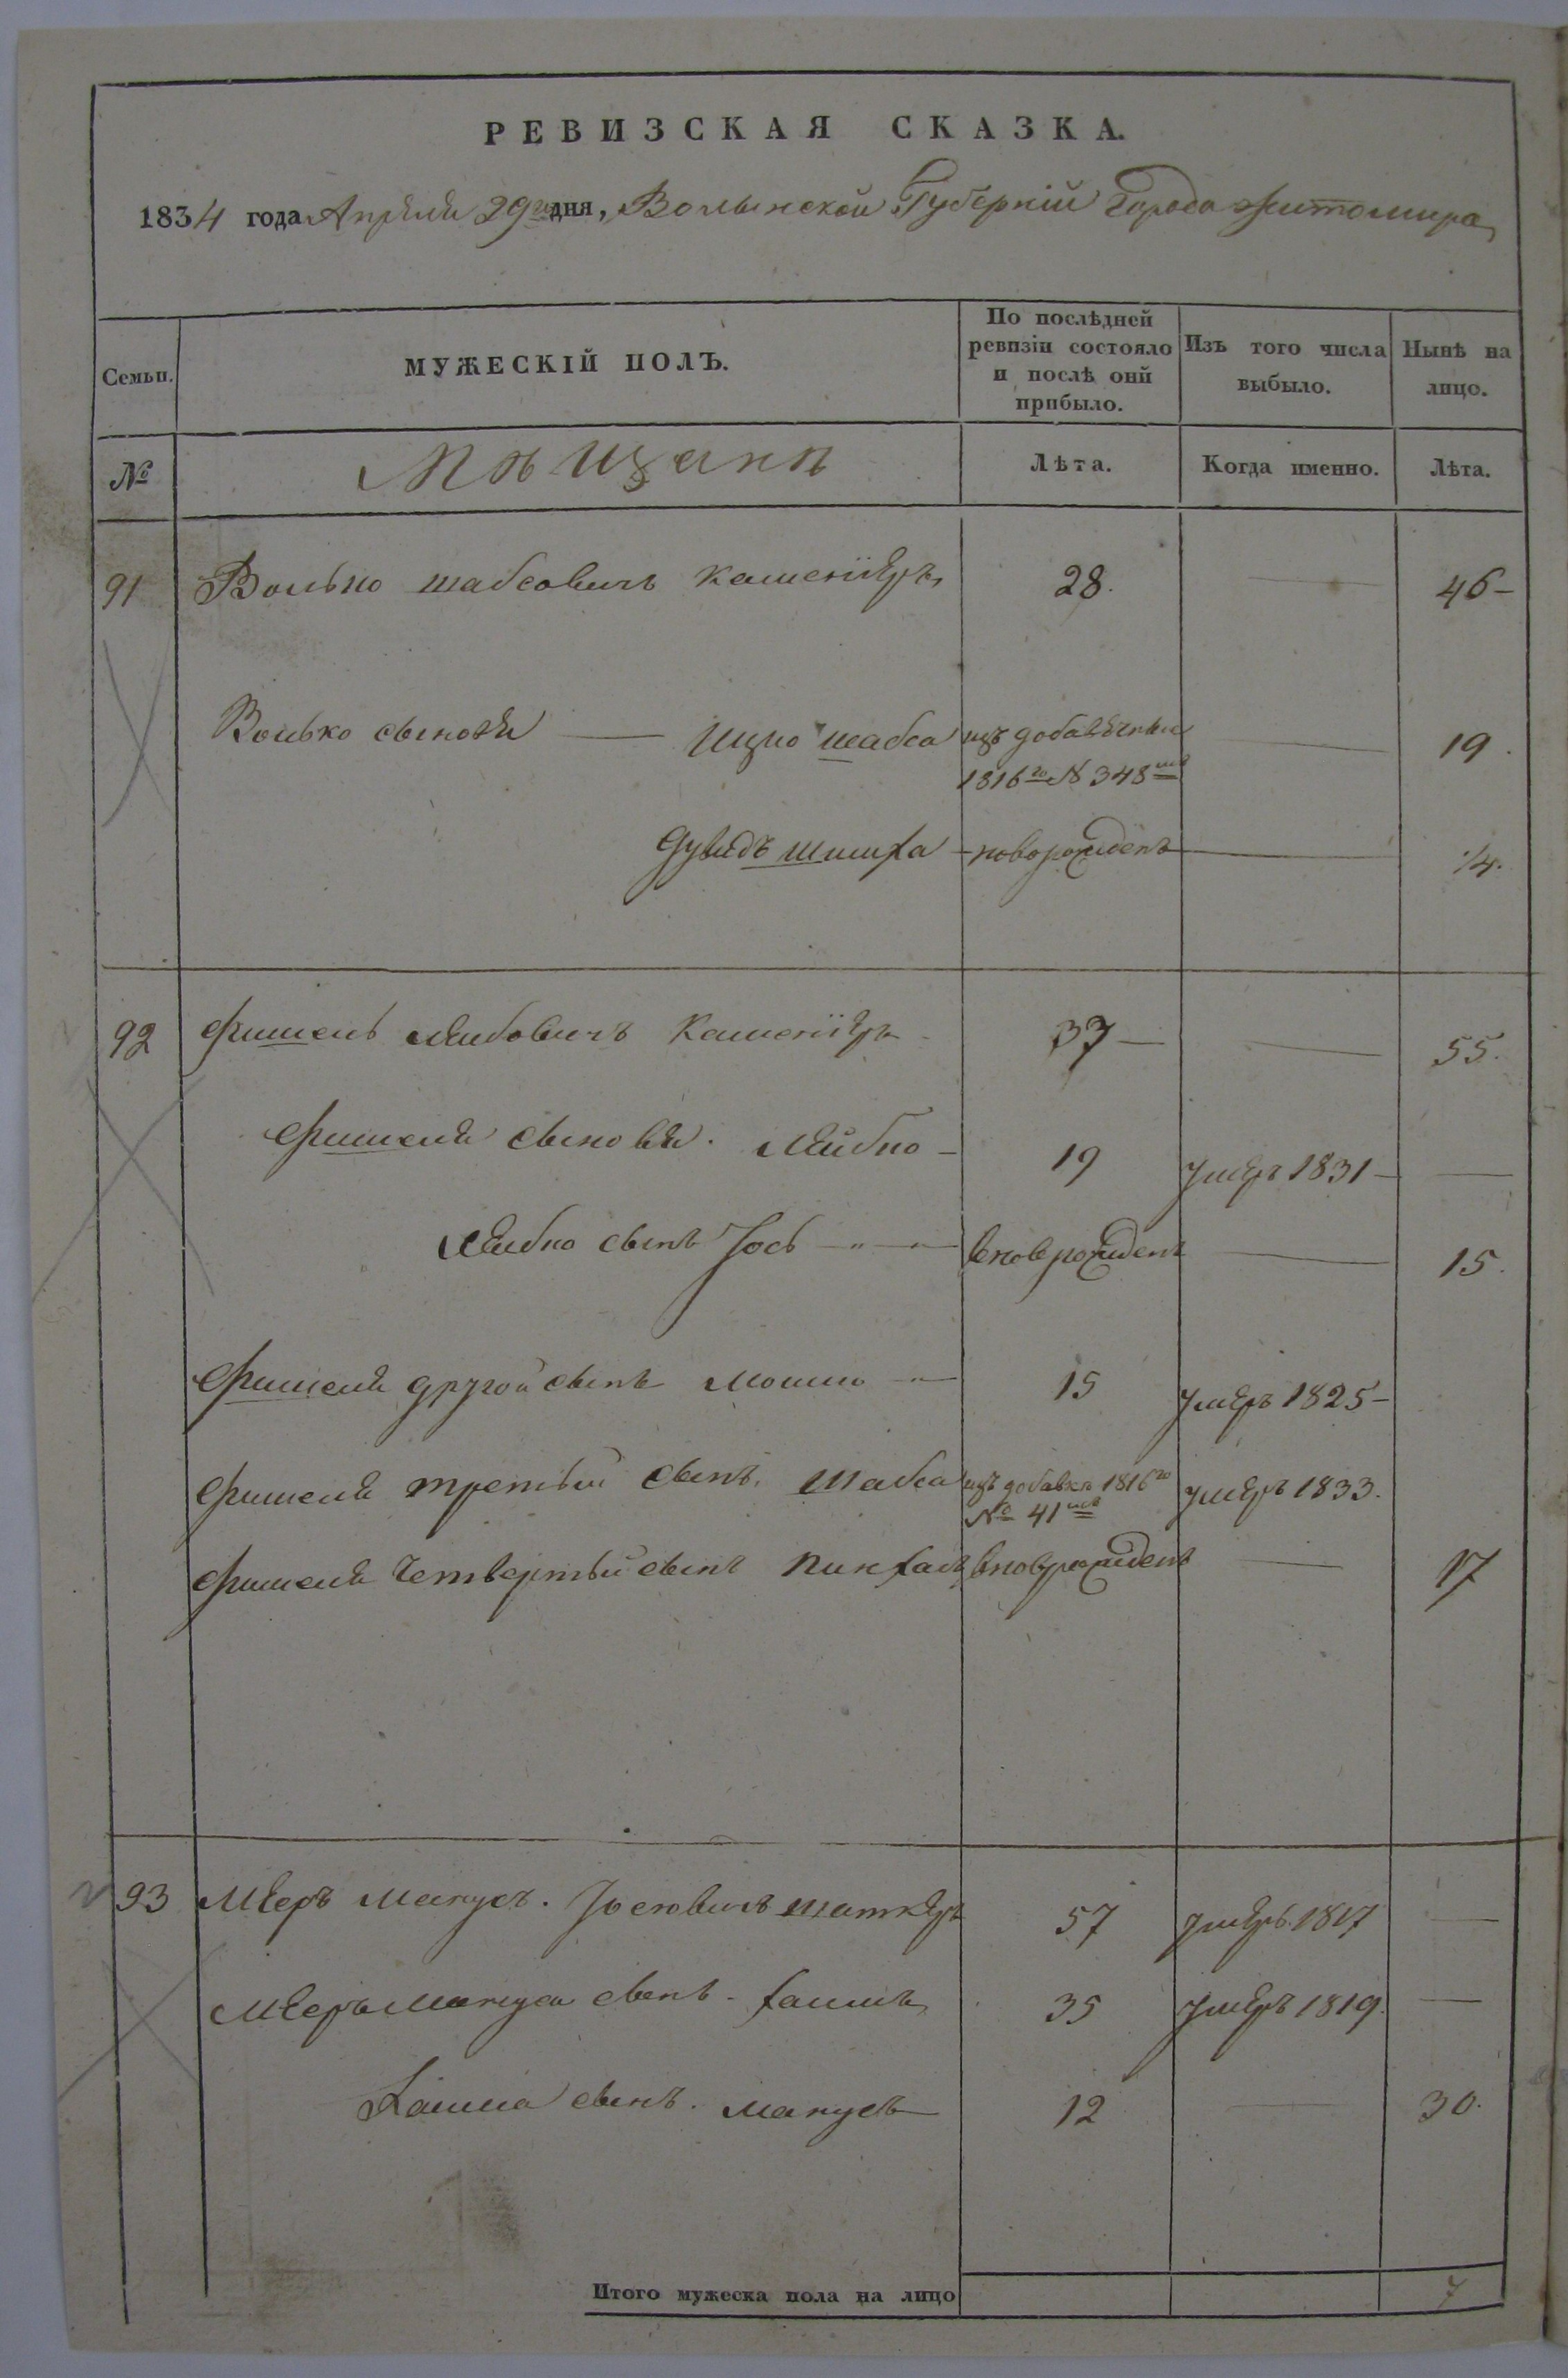 РЕВИЗСКАЯ СКАЗКА.
1834 года Апреля 29го дня, Волынской Губерніи Города Житомира
Семьи.
МУЖЕСКІЙ ПОЛЪ.
По послѣдней
ревизіи состояло
и послѣ оной
прибыло.
Изъ того числа
выбыло.
Нынѣ на
лицо.
№
Мѣщане
Лѣта.
Когда именно.
Лѣта.
91 Волько шабсовичъ Каменіеръ 28. 46
Волько сыновя Ицко шабса изъ добавочныхъ 19.
1816го № 348мъ
Дувидъ шимха новорожденъ 14.
92 Фишель Лейбовичъ Каменіеръ 37 55.
Фишеля сыновя. Лейбко 19 умеръ 1831
Лейбко сынъ Іось вновърожденъ 15.
Фишеля другой сынъ Мошко 15 умеръ 1825
Фишеля третьій сынъ. Шабса изъ добавки 1816го умеръ 1833.
№ 41мъ
Фишеля Четвертый сынъ Пинхасъ вновърожденъ 17
93 Мееръ Манусъ. Іосіовичъ 57 умеръ 1817
Мееръ Мануса сынъ. Хаимъ 35 умеръ 1819.
Хаима сынъ. Манусъ 12 30.
Итого мужеска пола на лицо 7